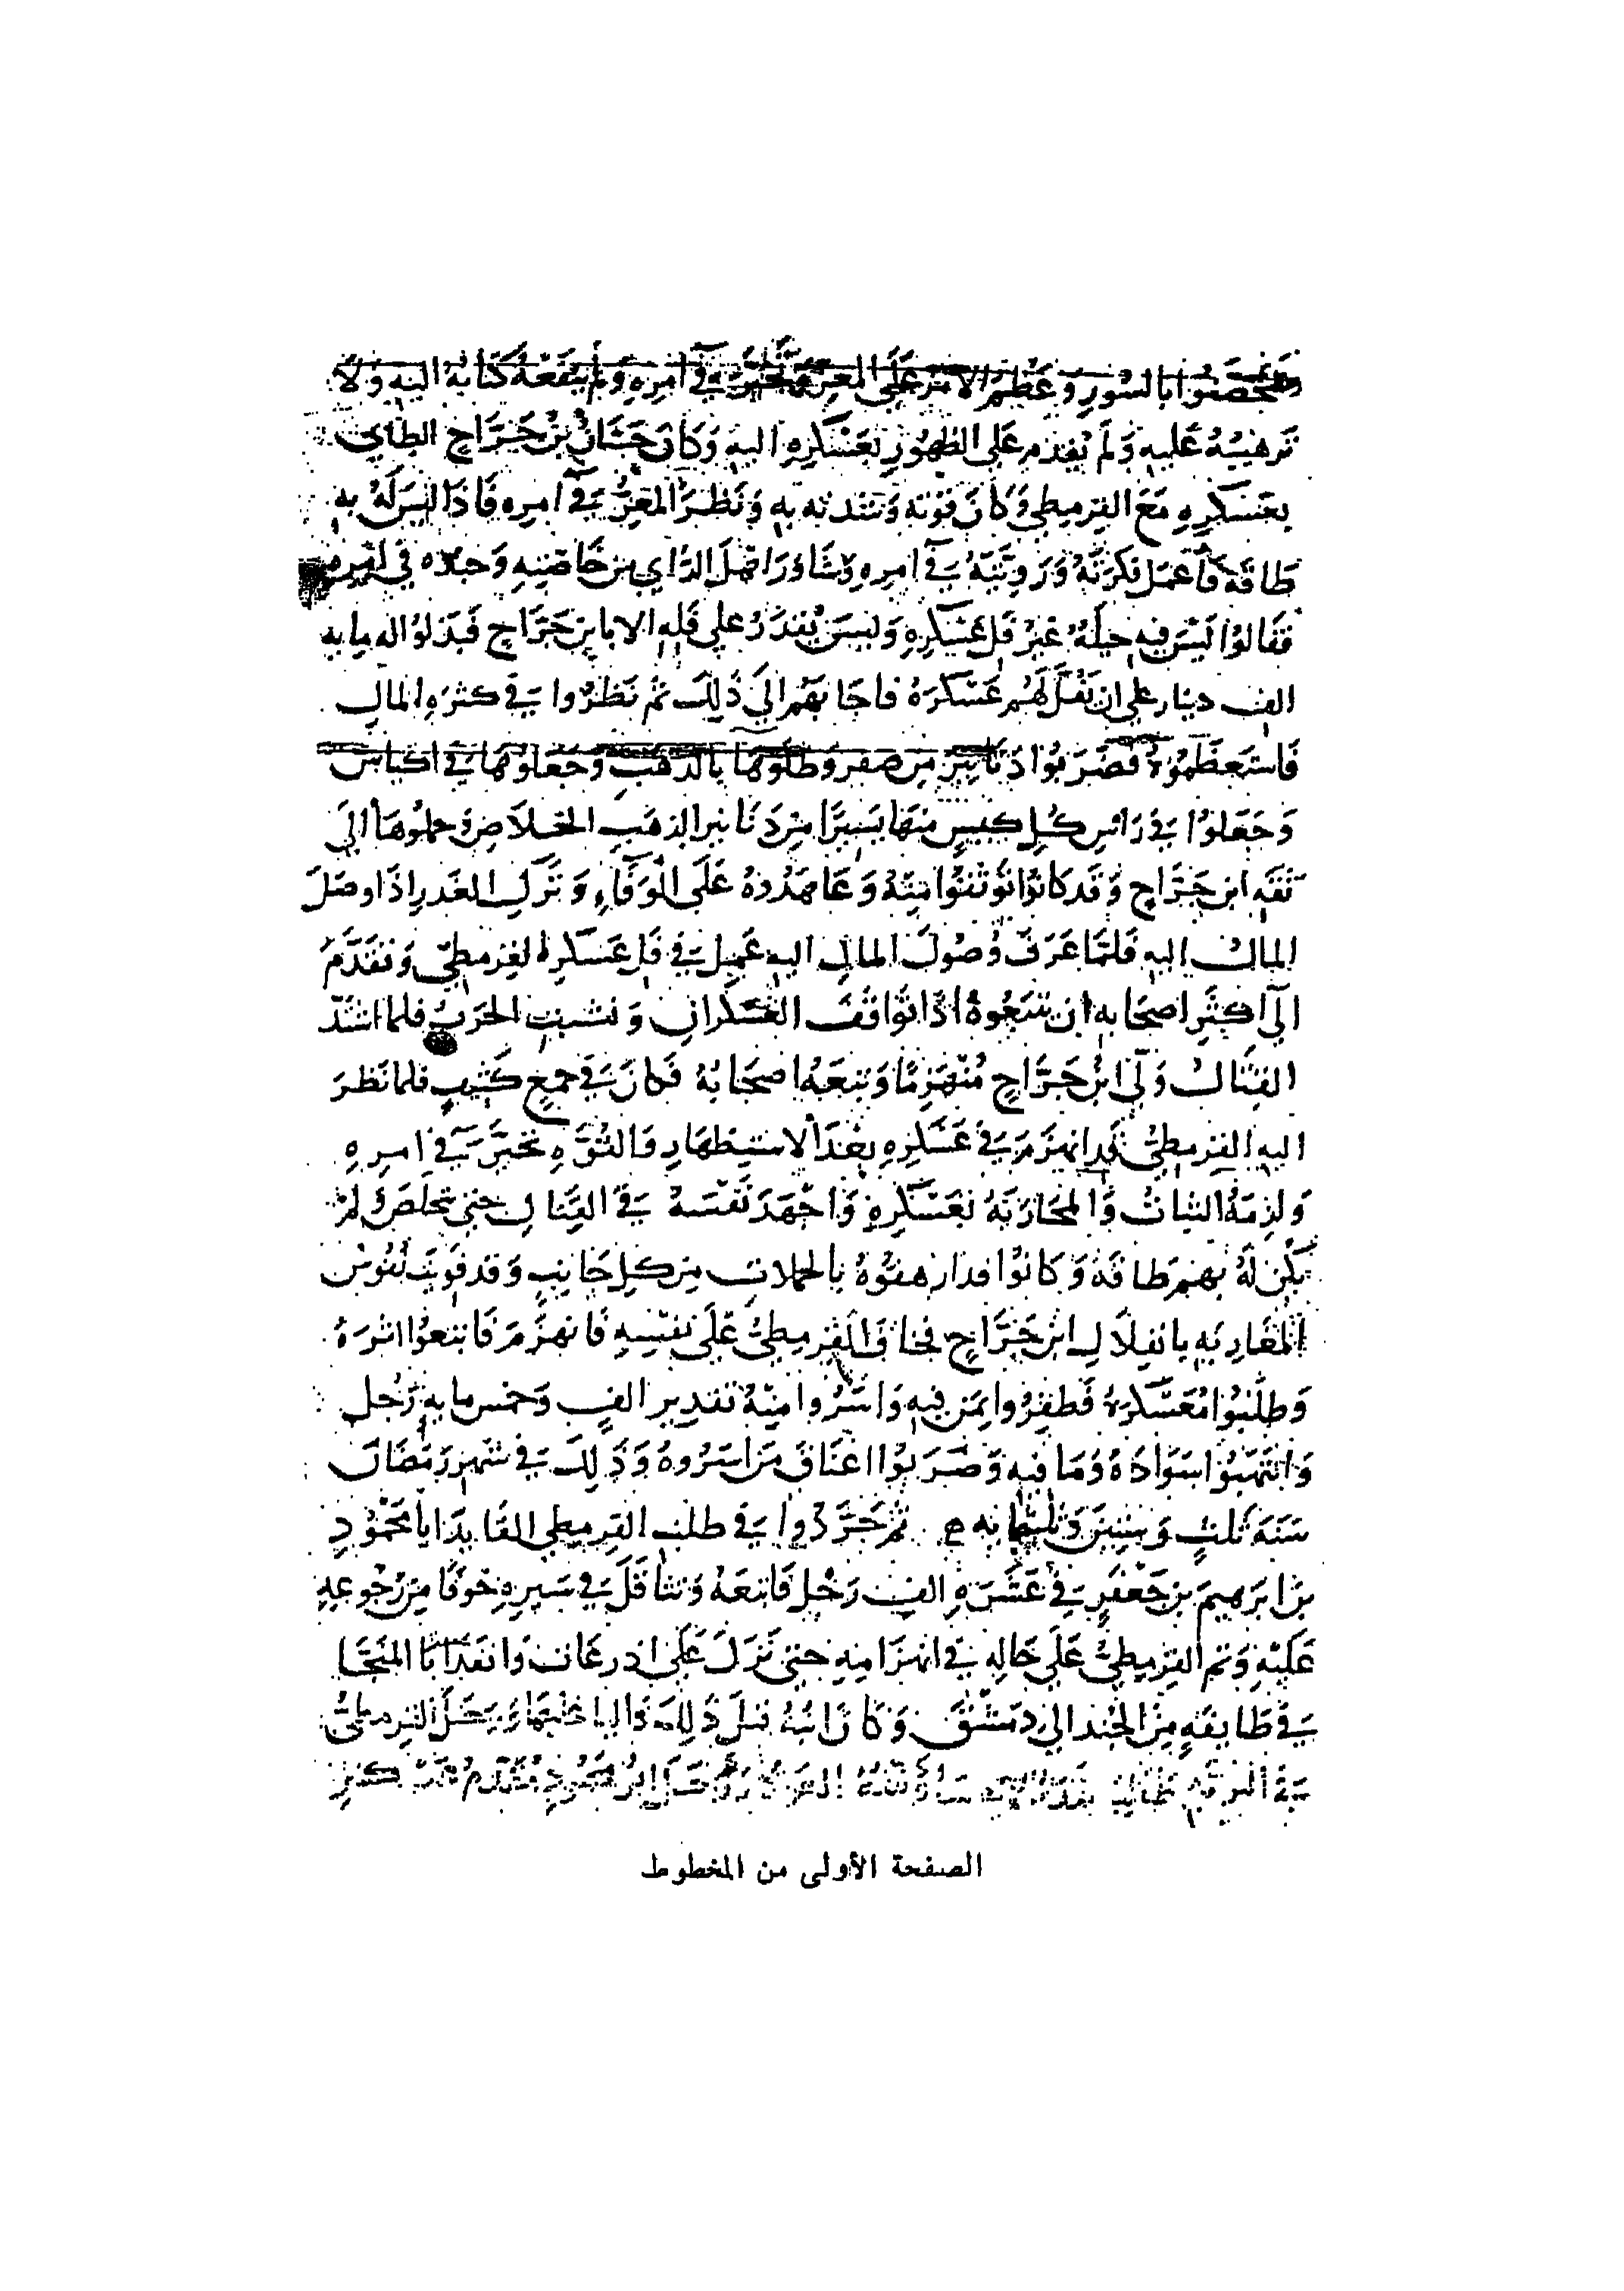 وتحصنوا بالسور وعظم الامر على المعز وتحير في امره ولم ينفعه كتابه اليه ولا
ترهيبه عليه ولم يقدم على الظهور بعسكره اليه وكان حسان بن جراح الطاي
بعسكره مع القرمطي وكان قوته وشدته به ونظر المعز في امره فاذا ليس له به
طاقة فاعمل فكرته ورويته في امره وشاور اهل الراي من خاصته وجنده في امره
فقالوا ليس فيه حيلة غير فل عسكره وليس يقدر على فله الا بابن جراح فبذلوا له مايه
الف دينار على ان يفل لهم عسكره فاجابهم الى ذلك ثم نظروا في كثره المال
فاستعظموه فضربوا دنانير من صفر وطلوها بالذهب وجعلوها في اكياس
وجعلوا في راس كل كيس منها يسيرا من دنانير الذهب الخلاص وحملوها الى
ثقه ابن جراح وقد كانوا توثقوا منه وعاهدوه على الوفاء وترك الغدر اذا وصل
المال اليه فلما عرف وصول المال اليه عمل في فل عسكر القرمطي وتقدم
الى اكثر اصحابه ان يتبعوه اذا تواقف العسكران ونشبت الحرب فلما اشتد
القتال ولى ابن جراح منهزما وتبعه اصحابه فكان في جمع كثيف فلما نظر
اليه القرمطي قد انهزم في عسكره بعد الاستظهار والقوه تحير في امره
ولزمه الثبات والمحاربه بعسكره واجهد نفسه في القتال حتى تخلص ولم
يكن له بهم طاقة وكانوا قد ارهقوه بالحملات من كل جانب وقد قويت نفوس
المغاربه بانفلال ابن جراح فخاف القرمطي على نفسه فانهزم فاتبعوا اثره
وطلبوا معسكره فظفروا بمن فيه واسروا منه تقدير الف وخمس مايه رجل
وانتهبوا سواده وما فيه وضربوا اعناق من اسروه وذلك في شهر رمضان
سنة ثلث وستين وثلثمايه ثم جردوا في طلب القرمطي القايد ابا محمود
بن ابرهيم بن جعفر في عشره الف رجل فاتبعه وتثاقل في سيره خوفا من رجوعه
عليه وتم القرمطي على حاله في انهزامه حتى نزل على اذرعات وانفذ ابا المنجا
في طايفة من الجند الى دمشق وكان ابنه قبل ذلك واليا عليها ورحل القرمطي
في البريه
الصفحة الأولى من المخطوط